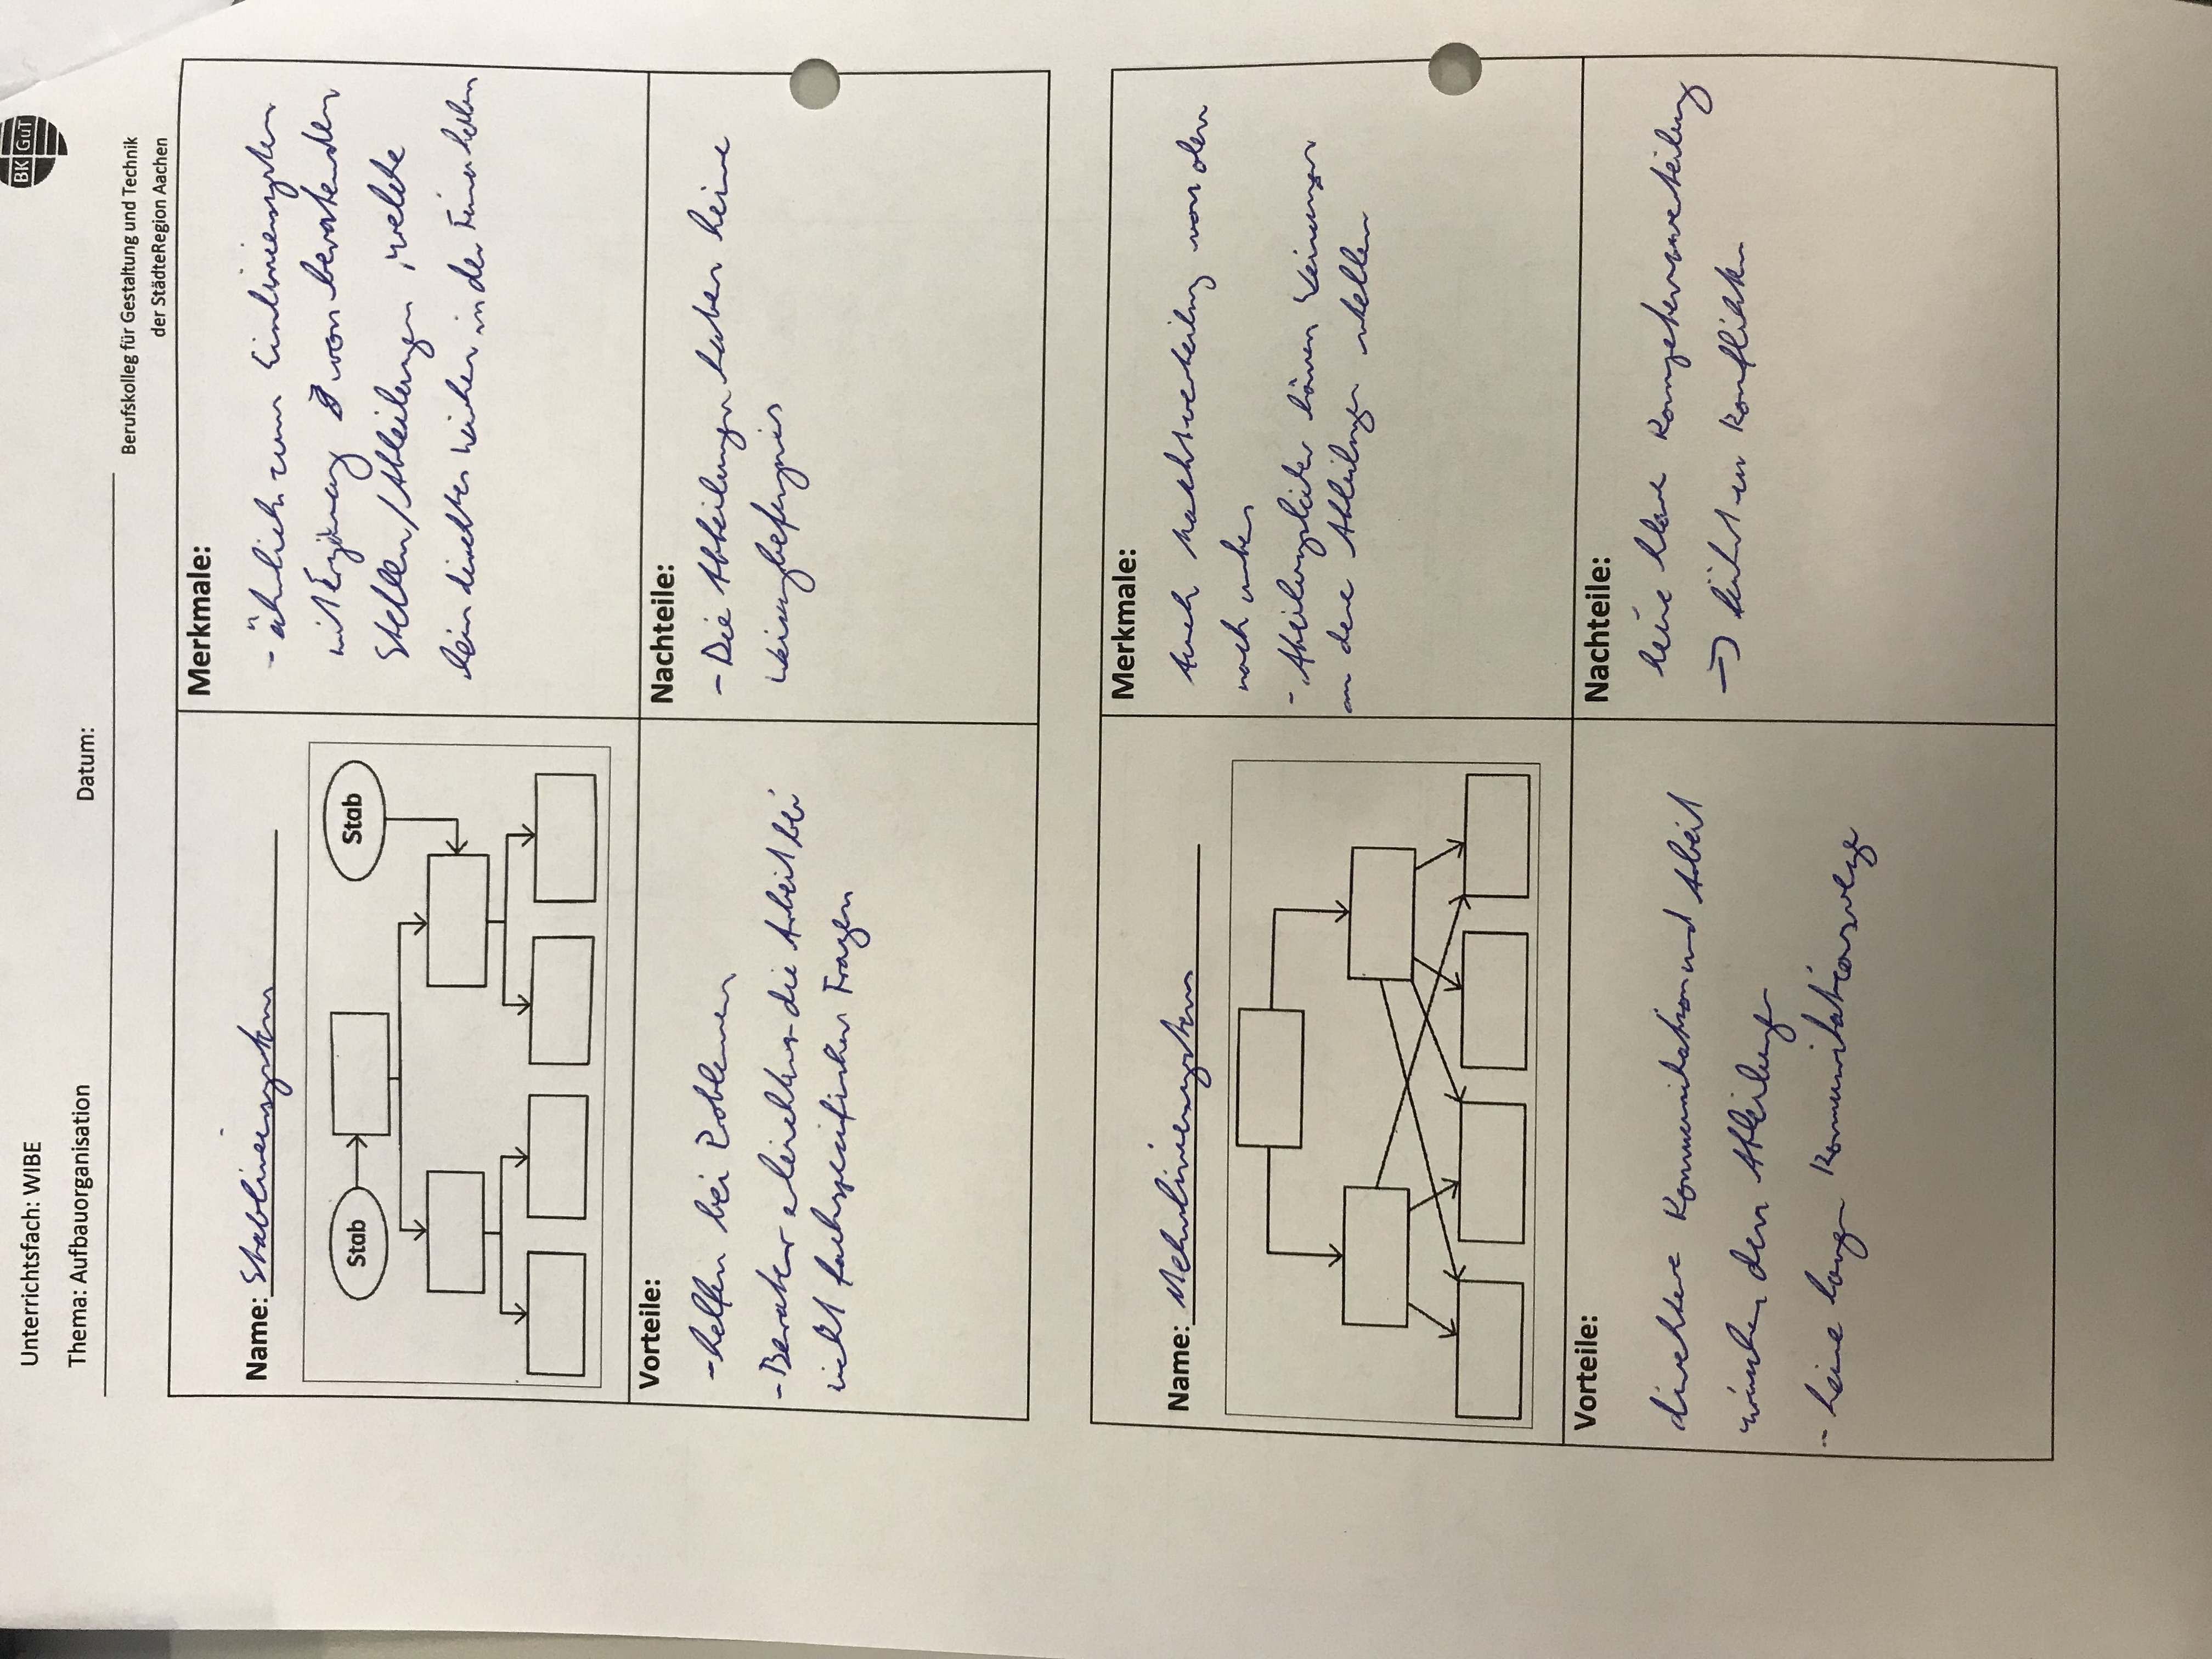 Unterrichtsfach: WIBE
BK GuT
Thema: Aufbauorganisation
Datum:
Berufskolleg für Gestaltung und Technik
der StädteRegion Aachen
Name: Stabliniensystem
Stab
Stab
Merkmale:
- ähnlich zum Einliniensystem
mit Ergänzung von beratenden
Stellen/Abteilungen, welche
kein direktes in der Firma haben
Vorteile:
- helfen bei Problemen
- Berater erleichtern die Arbeit bei
nicht fachspezifischen Fragen
Nachteile:
- Die Abteilungen haben keine
Weisungbefugnis
Name: Mehrliniensystem
Merkmale:
Auch Machtverteilung von oben
nach unten
- Abteilungsleiter können Weisungen
an Abteilungen stellen
Vorteile:
direktere Kommunikation und Arbeit
zwischen den Abteilungen
- keine langen Kommunikationswege
Nachteile:
keine klare Kompetenzverteilung
→ führt zu Konflikten